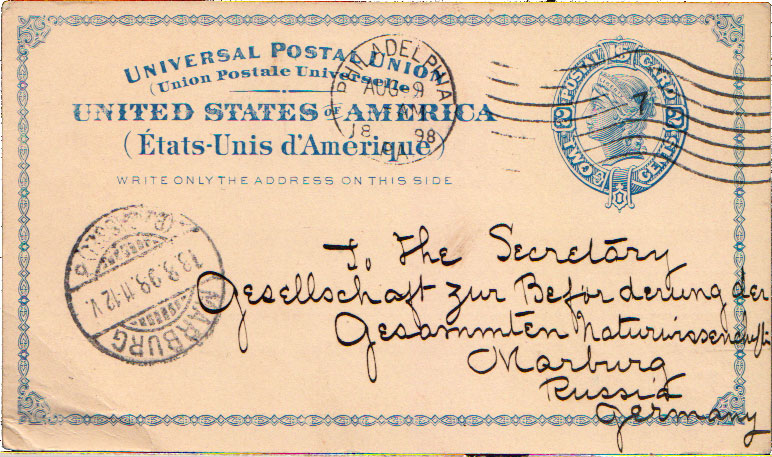 UNIVERSAL POSTAL UNION
(Union Postale Universelle)
UNITED STATES OF AMERICA
(États-Unis d'Amérique)
WRITE ONLY THE ADDRESS ON THIS SIDE
PHILADELPHIA
AUG 9
AM
18 98
PA
POSTAL CARD
2 TWO CENTS 2
MARBURG
18.8.98.11-12.V.
To The Secretary
Gesellschaft zur Beforderung der
Gesammten Naturwissenschaft
Marburg
Russia
Germany